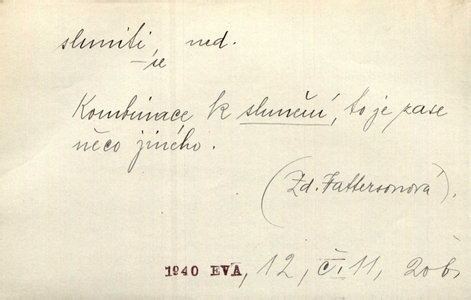 sluniti, ned.
– se
Kombinace k slunění, to je zase
něco jiného.
(Zd. Fattersonová).
1940 EVA, 12, č. 11, 20 b.